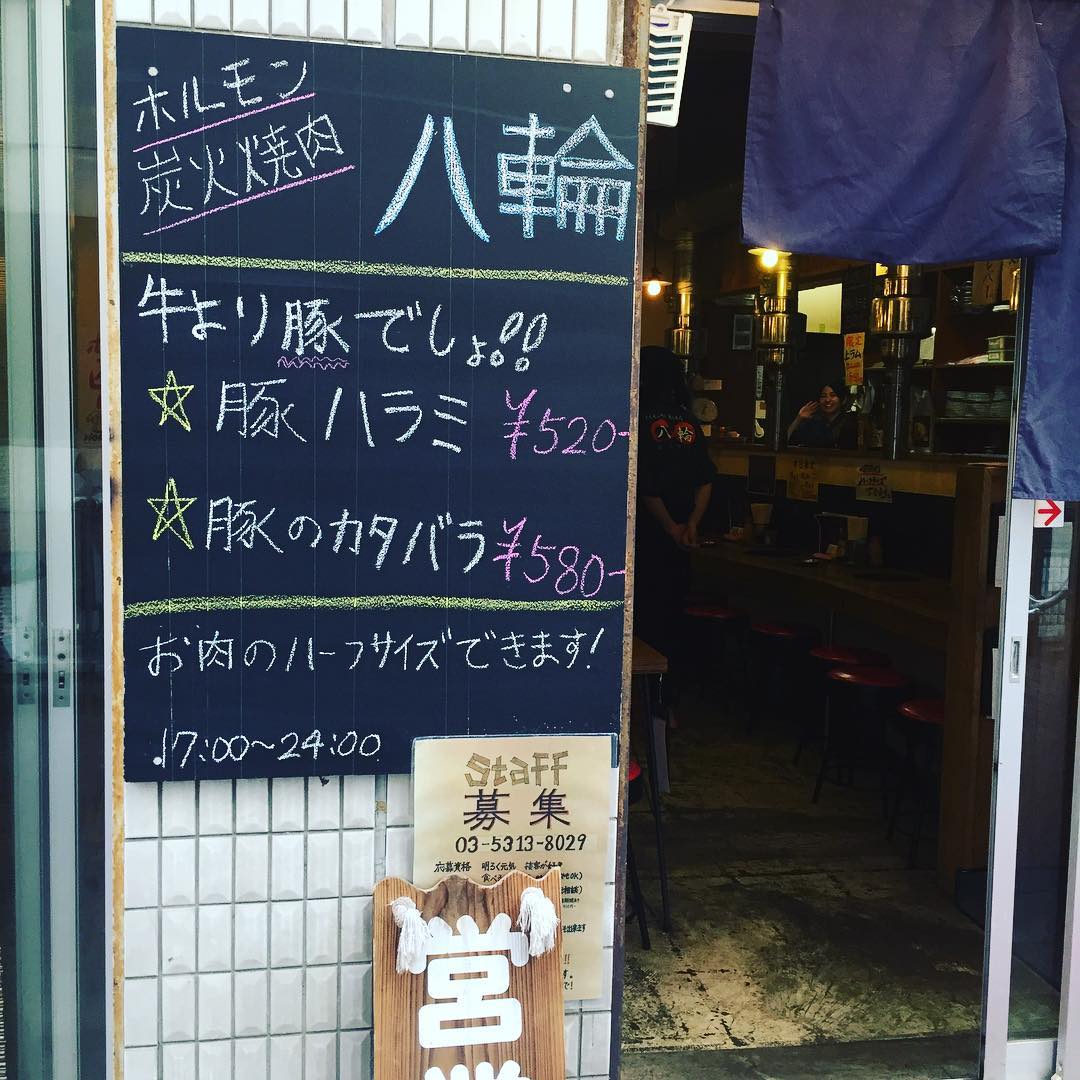 ホルモン
炭火焼肉
八輪
牛より豚でしょ!!
☆豚ハラミ ¥520-
☆豚のカタバラ ¥580-
お肉のハーフサイズできます!
17:00~24:00
staff
募集
03-5313-8029
応募資格 明るく元気
営
八輪
限定